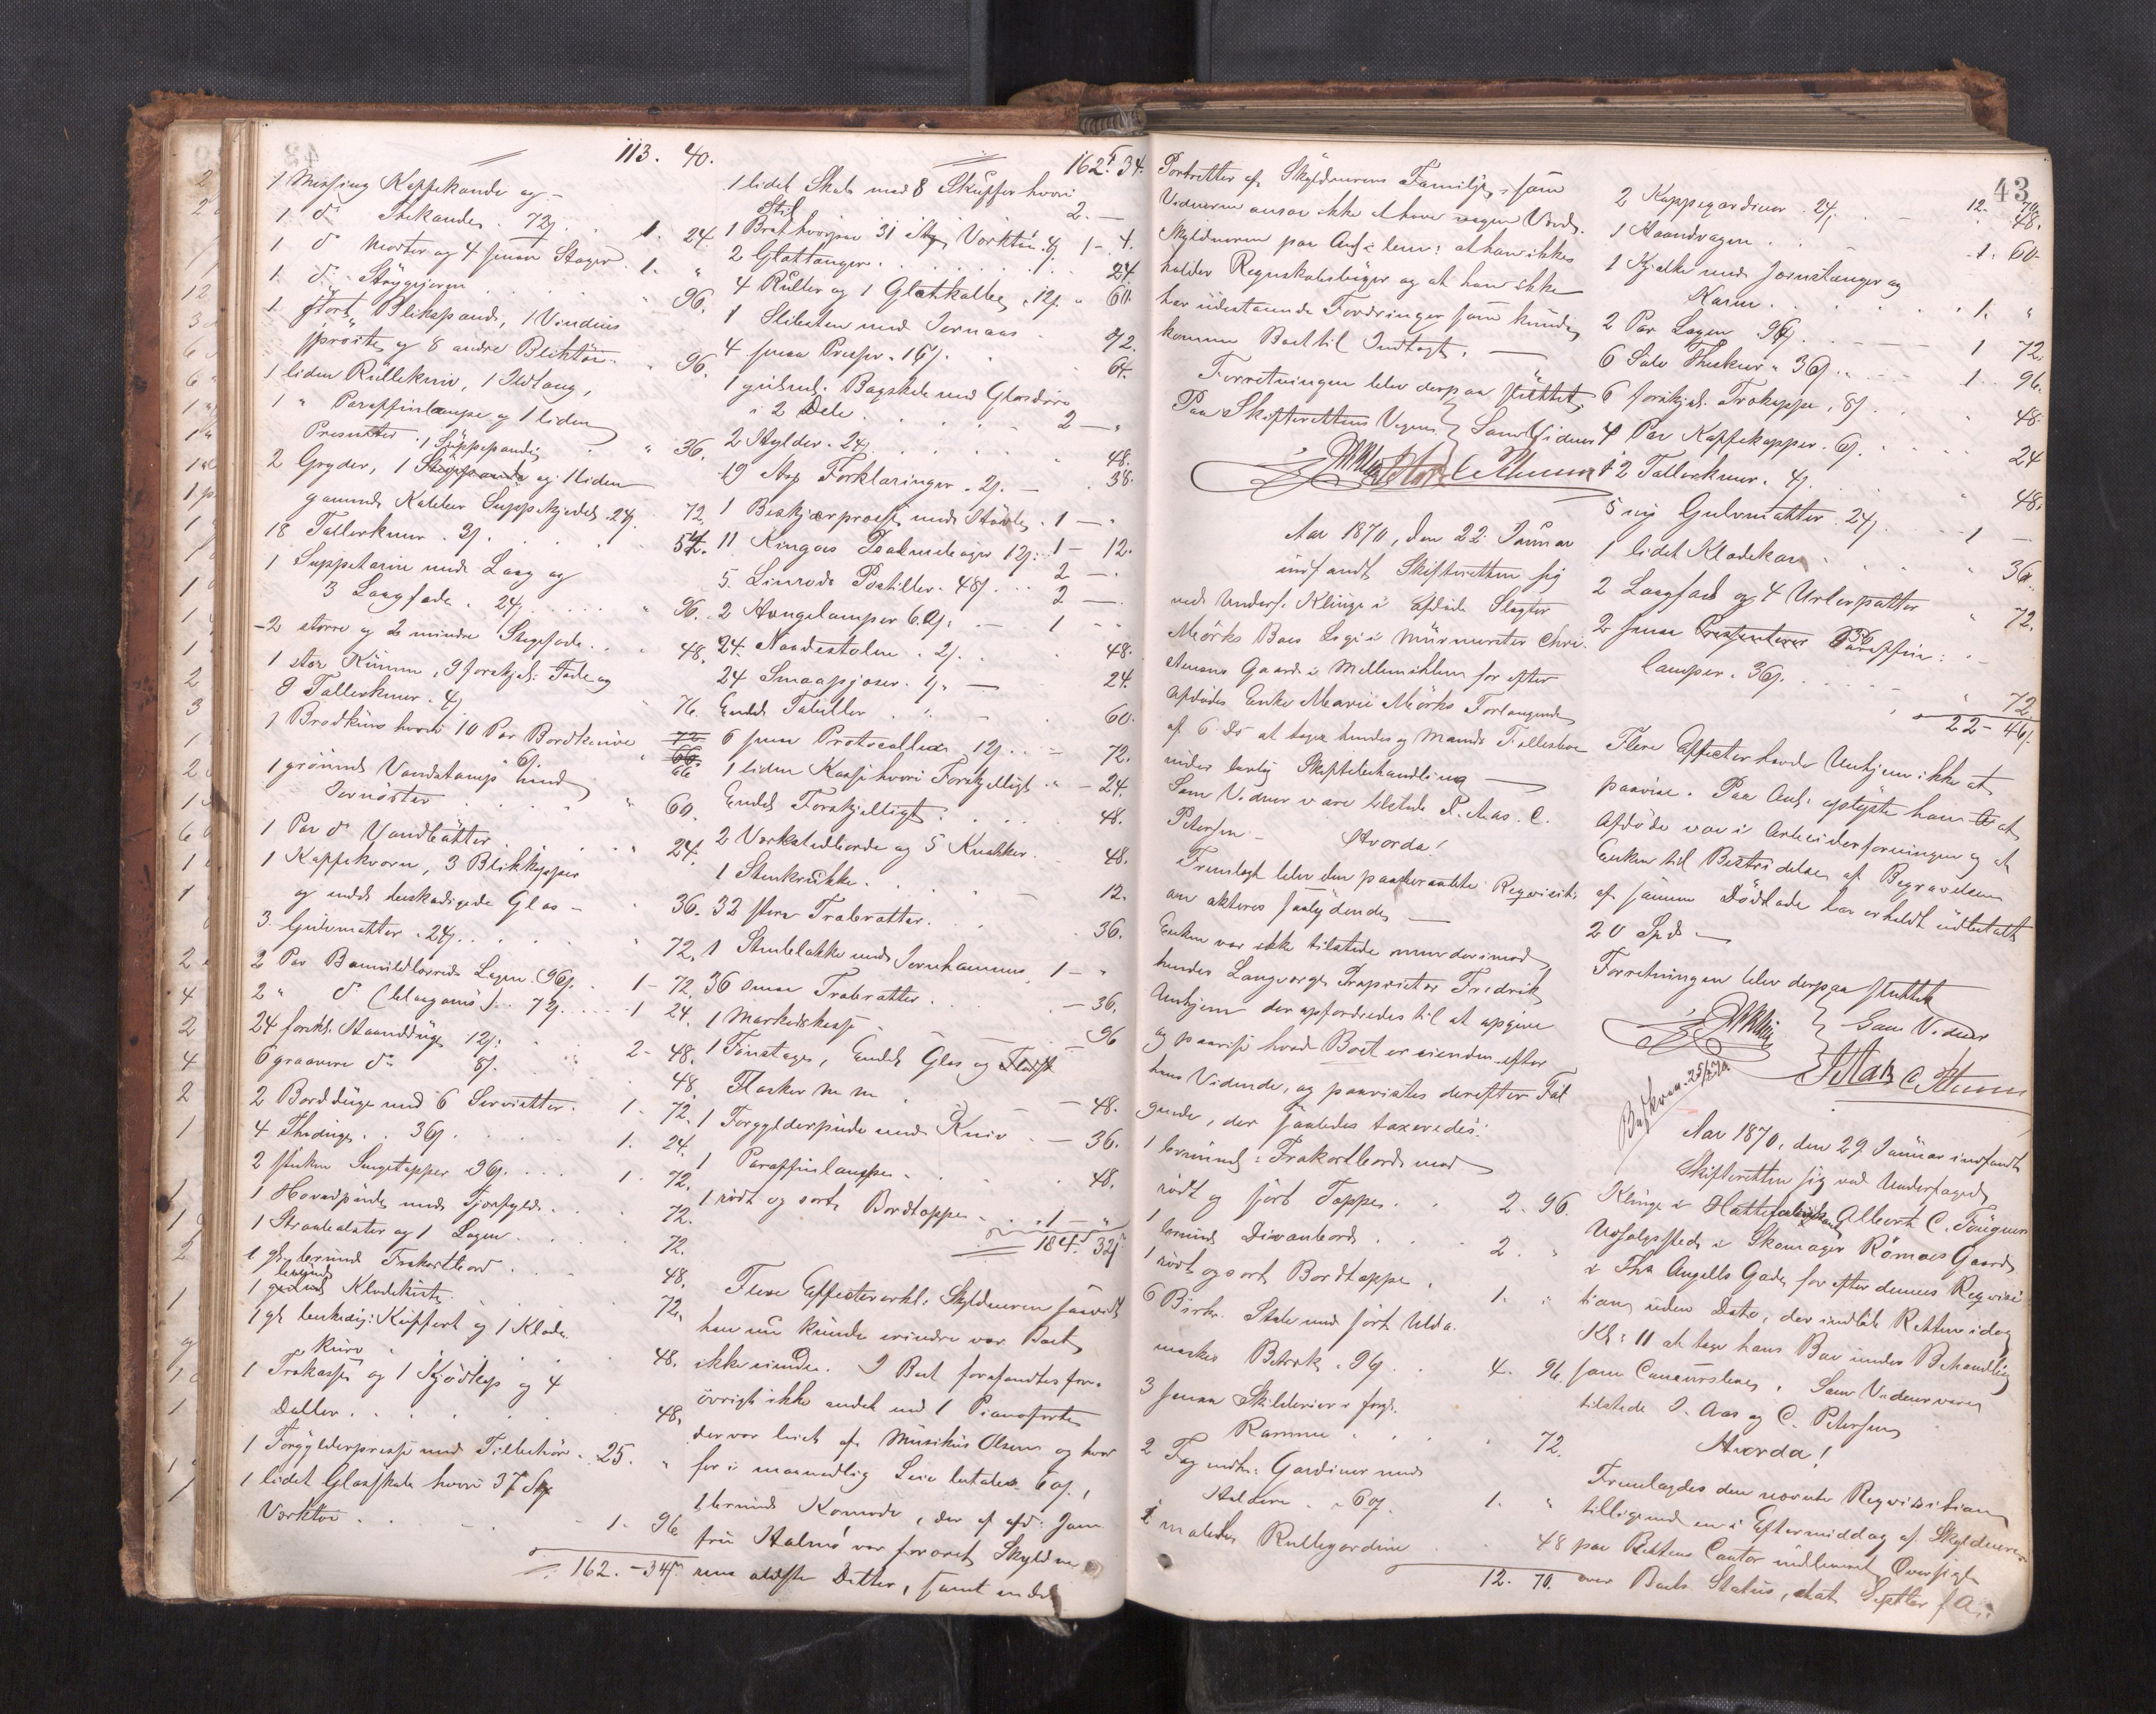 113. 40.
1 Messing Kaffekande og
1 do Thekande . 72ß . . 1. 24.
1 do Morter og 4 smaa Stager . 1. "
1 do Strygejern . . . " 96.
1 stort Blikspand, 1 Vindus
sprøite og 8 andre Bliktøi . " 96.
1 liden Rullekniv, 1 Ildtang,
1 " Paraffinlampe og 1 liden
Presenter . 1 Suppepande . " 36.
2 Gryder, 1 og 1 liden
gammel Kobber Suppekjedel . 24ß 72.
18 Tallerkener . 3ß . . . 54.
1 Suppeterin med Laag og
3 Laagfade . 24ß . . . " 96.
2 større og 2 mindre Stegefade . . 48.
1 stor Kumme, 9 forskjel: Fade og
9 Tallerkener . 4ß . . 76.
1 Brødkurv hvori 10 Par Bordknive 72
6ß 66.
66
1 grønmal: Vandstamp med
Jernøster . . . " 60.
1 Par do Vandbøtter . . . 24.
1 Kaffekvern, 3 Blikkopper
og endel beskadigede Glas - . 36.
3 Gulvmatter . 24ß . . . " 72.
2 Par Bomuldlærreds Lagen . 96ß . . 1 - 72.
2 " do . 72ß . . . 1 24.
24 forskl. Haandduge 12ß: . . 2 - 48.
6 graavere do 8ß. . . 48.
2 Bordduge med 6 Servietter . 1 - 72.
4 Theduge . . 36ß . . . 1. 24.
2 Sengetepper 96ß . . . 1. 72.
1 Hovedpude med Fjærfyld . . . 72.
1 Straamadrats og 1 Lagen . . . 72.
1 gl. brunmal: Frokostbord . . . 48.
1 Klædekiste . . . 72.
1 gl. Kuffert og 1 Klæde
kurv . . . 48.
1 Trækasse og 1 Kjødtrug og 4
Daller . . . . 48.
1 Forgylderpresse med Tilbehør . 25. "
1 lidet Glasskab hvori 37 Stk
Værktøi . . . . 1. 96.
162. - 34ß
162. 34.
1 lidet Skab med 8 Skuffer hvori
Stil 2. -
1 Bræt hvorpaa 31 Stk Værktøi . 4ß 1 - 4.
2 Glattænger . . . . 24
4 Ruller og 1 Glatkolbe . 12ß . " 60.
1 Slibesten med Jernaas . . 72.
4 smaa Presser . 16ß . . . 64.
1 gulmal. Bogskab med Glasdøre
i 2 Dele . . . . 2 - "
2 Hylder . 24ß . . . . 48.
19 Stkr Forklaringer . 2ß . - . 38.
1 Beskjærpresse med Høvle . 1 - "
11 Kingos Psalmebøger 12ß: 1 - 12.
5 Linrods Postiller . 48ß . . . 2 - .
2 Hængelamper 60ß . - 1 - -
24 Naadestolen . 2ß . . . 48.
24 Smaapsjaser . 1ß . - 24.
Endel Tabeller . . . 60.
6 smaa Protocoller 12ß . . - 72.
1 liden Kasse hvori Forskjelligt . " - 24.
Endel Forskjelligt . . . . 48.
2 Værkstedborde og 5 Krakker . . 48.
1 Stenkrukke . . . - 12.
32 større Træbrætter . . . . 36.
1 Stenblokke med Jernhammer 1 - "
36 smaa Træbrætter . . - 36.
1 Markedskasse - . . - 96
1 Fønstage, Endel Glas og
Flasker m m . - - 48.
1 Forgylderpude med Kniv . - 36.
1 Paraffinlampe . . . 48.
1 rødt og sorte Bordteppe . . 1 - "
184. 32ß
Flere Effecter erkl: Skyldneren saavidt
han nu kunde erindre var Boet
ikke eiende. I Boet forefandtes for-
øvrigt ikke andet end 1 Pianoforte
der var leiet af Musikus Olsen og hvor
for i maanedlig Leie betales 60ß,
1 brunmal: Komode, der af afd: Jom
fru Holmö var foræret Skyldne
rens ældste Datter, samt endel
43
Portretter af Skyldnerens Familje, som
Vidnerne ansaa ikke at have nogen Værdi.
Skyldneren paa Anl: bem: at han ikke
holder Regnskabsbøger og at han ikke
har udestaaende Fordringer som kunde
komme Boet til Indtægt. -
Forretningen blev derpaa sluttet
Paa Skifterettens Vegne } Som Vidner
Aar 1870, den 22 Januar
indfandt Skifteretten sig
ved Underf. Klinge i afdøde Slagter
Mørks Boes Logi i Murmester Chri-
stensens Gaard i Mellemihlen for efter
Afdødes Enke Marie Mørks Forlangende
af 6 ds at tage hendes og Mands Fællesboe
under lovlig Skiftebehandling -
Som Vidner vare tilstede P. Aas . C.
Petersen - Hvorda!
Fremlagt blev den paaberaabte Requisit:
om akteres saalydende -
Enken var ikke tilstede men derimod
hendes Laugværge Proprietær Fredrik
Unhjem der opfordredes til at opgive
og paavise hvad Boet er eiende efter
hans Vidende, og paavistes derefter Føl
gende, der saaledes taxeredes:
1 brunmal: Frokostbord med
rødt og sort Teppe . . 2. 96.
1 brunmal: Divanbord . . . 2. "
1 rødt og sort Bordteppe . . 1. "
6 Birke Stole med sort Ulda-
maskes Betræk . 96ß . . 4. 96.
3 smaa Skilderier i forgl.
Ramme . . . . 72.
2 Fag Gardiner med
Holdere . . 60ß . 1. "
2 malede Rullegardiner . . 48
12. 70.
12. 70.
2 Kappegardiner . 24ß . . - " 48.
1 Haandvogn . . - 1. 60.
1 Kjælke med Jernstænger og
Karm . . . . 1. "
2 Par Lagen 96ß . . - 1 72.
6 Sølv Theskeer . 36ß . . 1. 96.
6 forskjel. Trøkopper . 8ß . . " 48.
4 Par Kaffekopper . 6ß . . . 24
12 Tallerkener . 4ß . . . 48.
5 nye Gulvmatter . 24ß . . - 1 -
1 lidet Klædekar . . . 36.
2 Laagfad og 4 Urtepotter " 72.
2 smaa Paraffin:
lamper . 36ß . . . " 72
22 - 46ß
Flere Effecter havde Unhjem ikke at
paavise. Paa Anl: oplyste han at
Afdøde var i Arbeiderforeningen og at
Enken til Bestridelse af Begravelsen
af samme Dødslade har erholdt udbetalt
20 Spd -
Forretningen blev derpaa sluttet
} Som Vidner
P Aas C. Petersen
Aar 1870, den 29 Januar indfandt
Skifteretten sig ved Underfoged
Klinge i Albert C. Fougner
Udsalgssted i Skomager Römoes Gaard
i Ths Angells Gade for efter dennes Requisi
tion uden Dato, der indkom Retten idag
Kl: 11 at tage hans Boe under Behandling
som Concursboe. Som Vidner vare
tilstede P. Aas og C. Petersen
Hvorda!
Fremlagdes den nævnte Requisition
tilligemed en i Eftermiddag af Skyldneren
paa Rettens Contor indleveret Oversigt
over Boets Status, dat